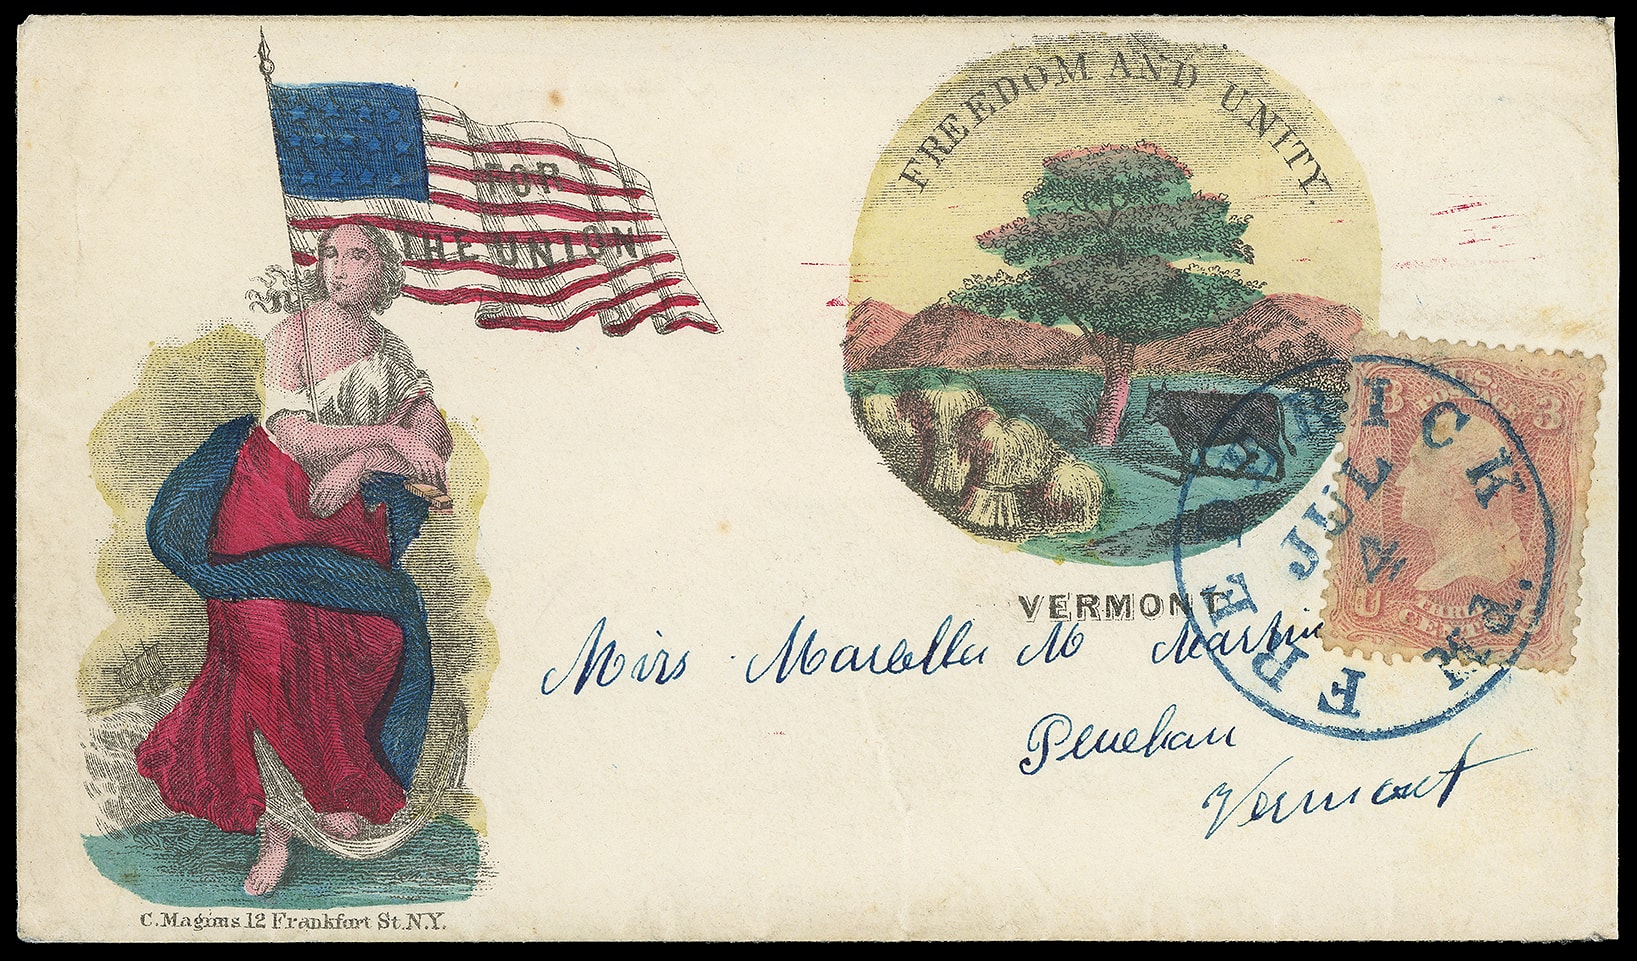 FOR
THE UNION
FREEDOM AND UNITY.
VERMONT
Miss Marcella M Martin
Vermont
FREDERICK MD.
JUL
4
U.S. POSTAGE
3 3
U S
THREE
CENTS
C. Magnus 12 Frankfort St. N.Y.